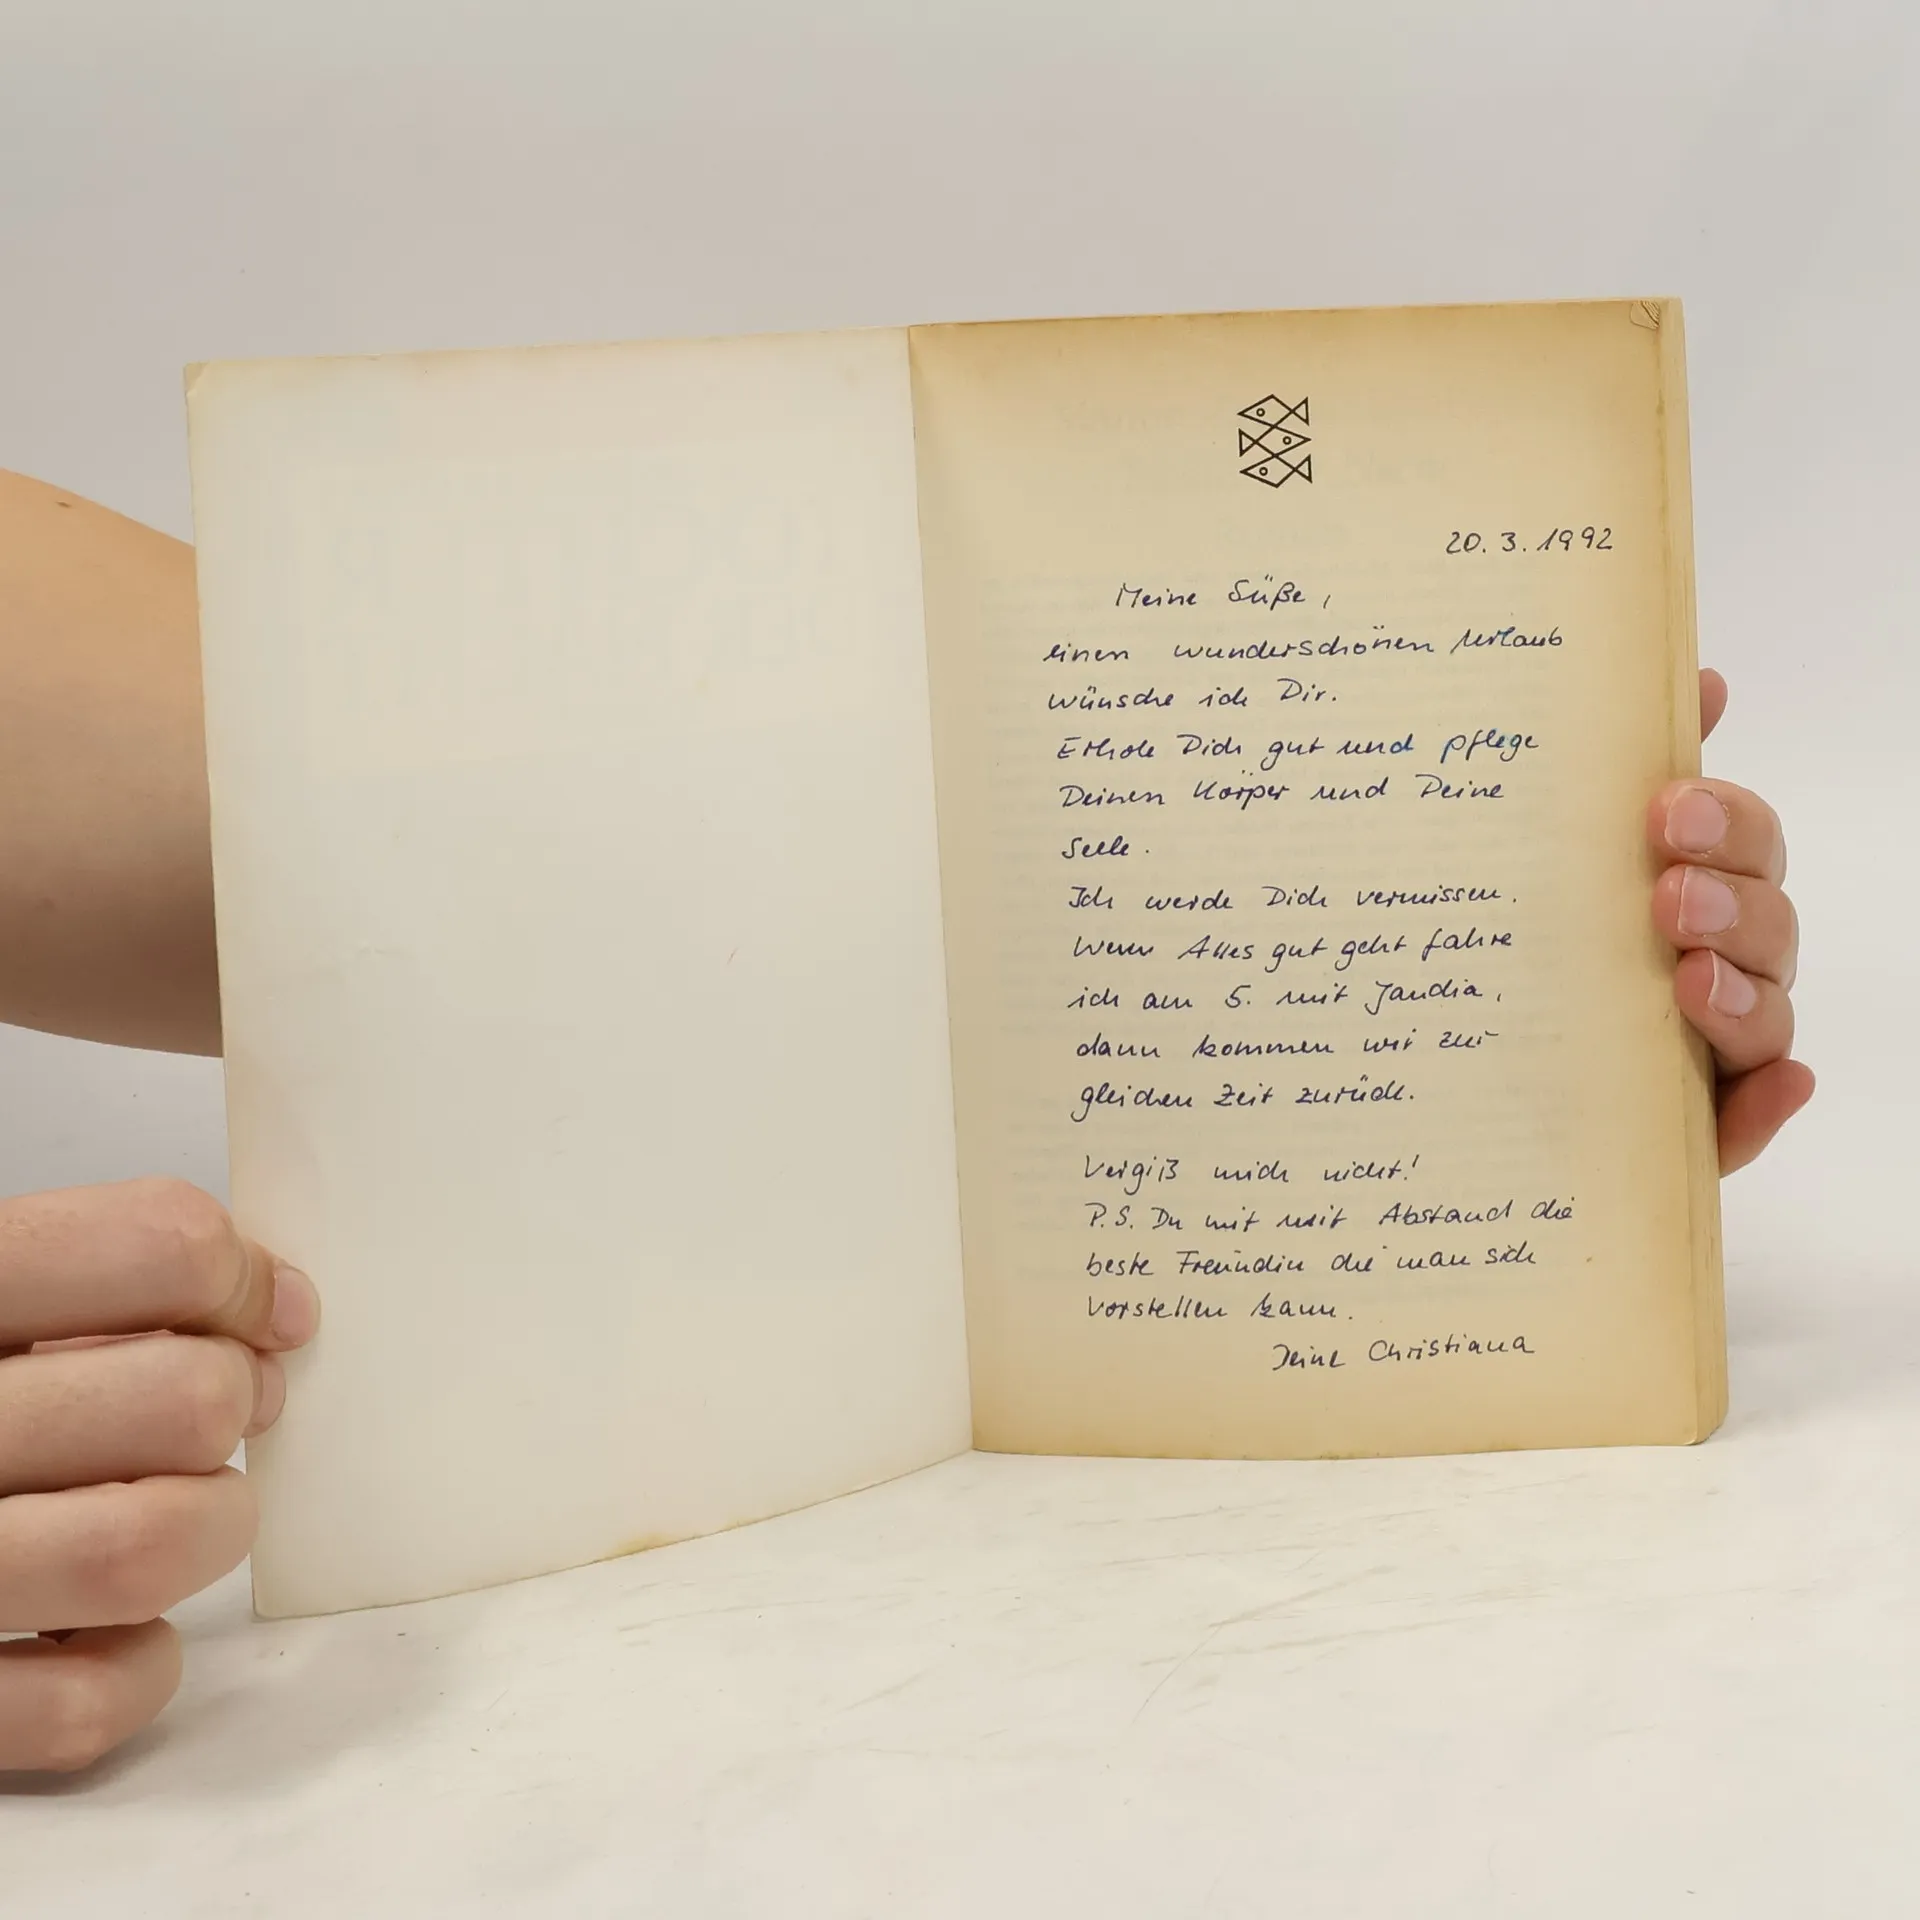 20. 3. 1992
Meine Süße,
einen wunderschönen Urlaub
wünsche ich Dir.
Erhole Dich gut und pflege
Deinen Körper und Deine
Seele.
Ich werde Dich vermissen.
Wenn Alles gut geht fahre
ich am 5. mit Jandia,
dann kommen wir zur
gleichen Zeit zurück.
Vergiß mich nicht!
P.S. Du mit mit Abstand die
beste Freundin die man sich
vorstellen kann.
Deine Christiana